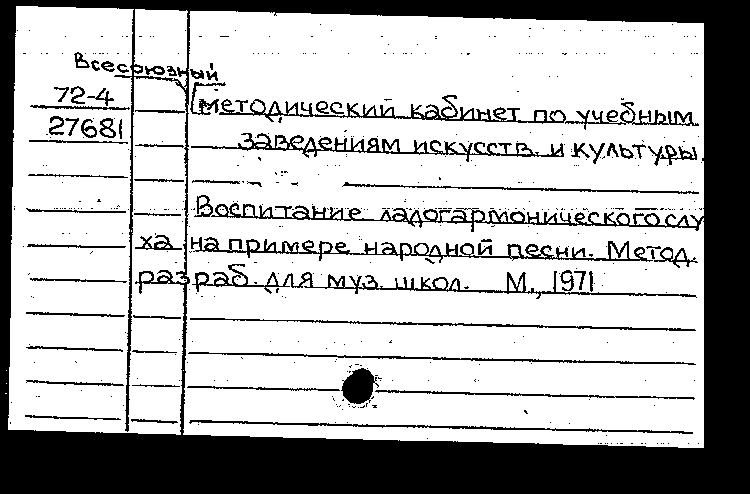 Всесоюзный
72-4
методический кабинет по учебным
27681
заведениям искусств и культуры.
Воспитание ладогармонического слу
ха на примере народной песни. Метод.
разраб. для муз. школ. М., 1971